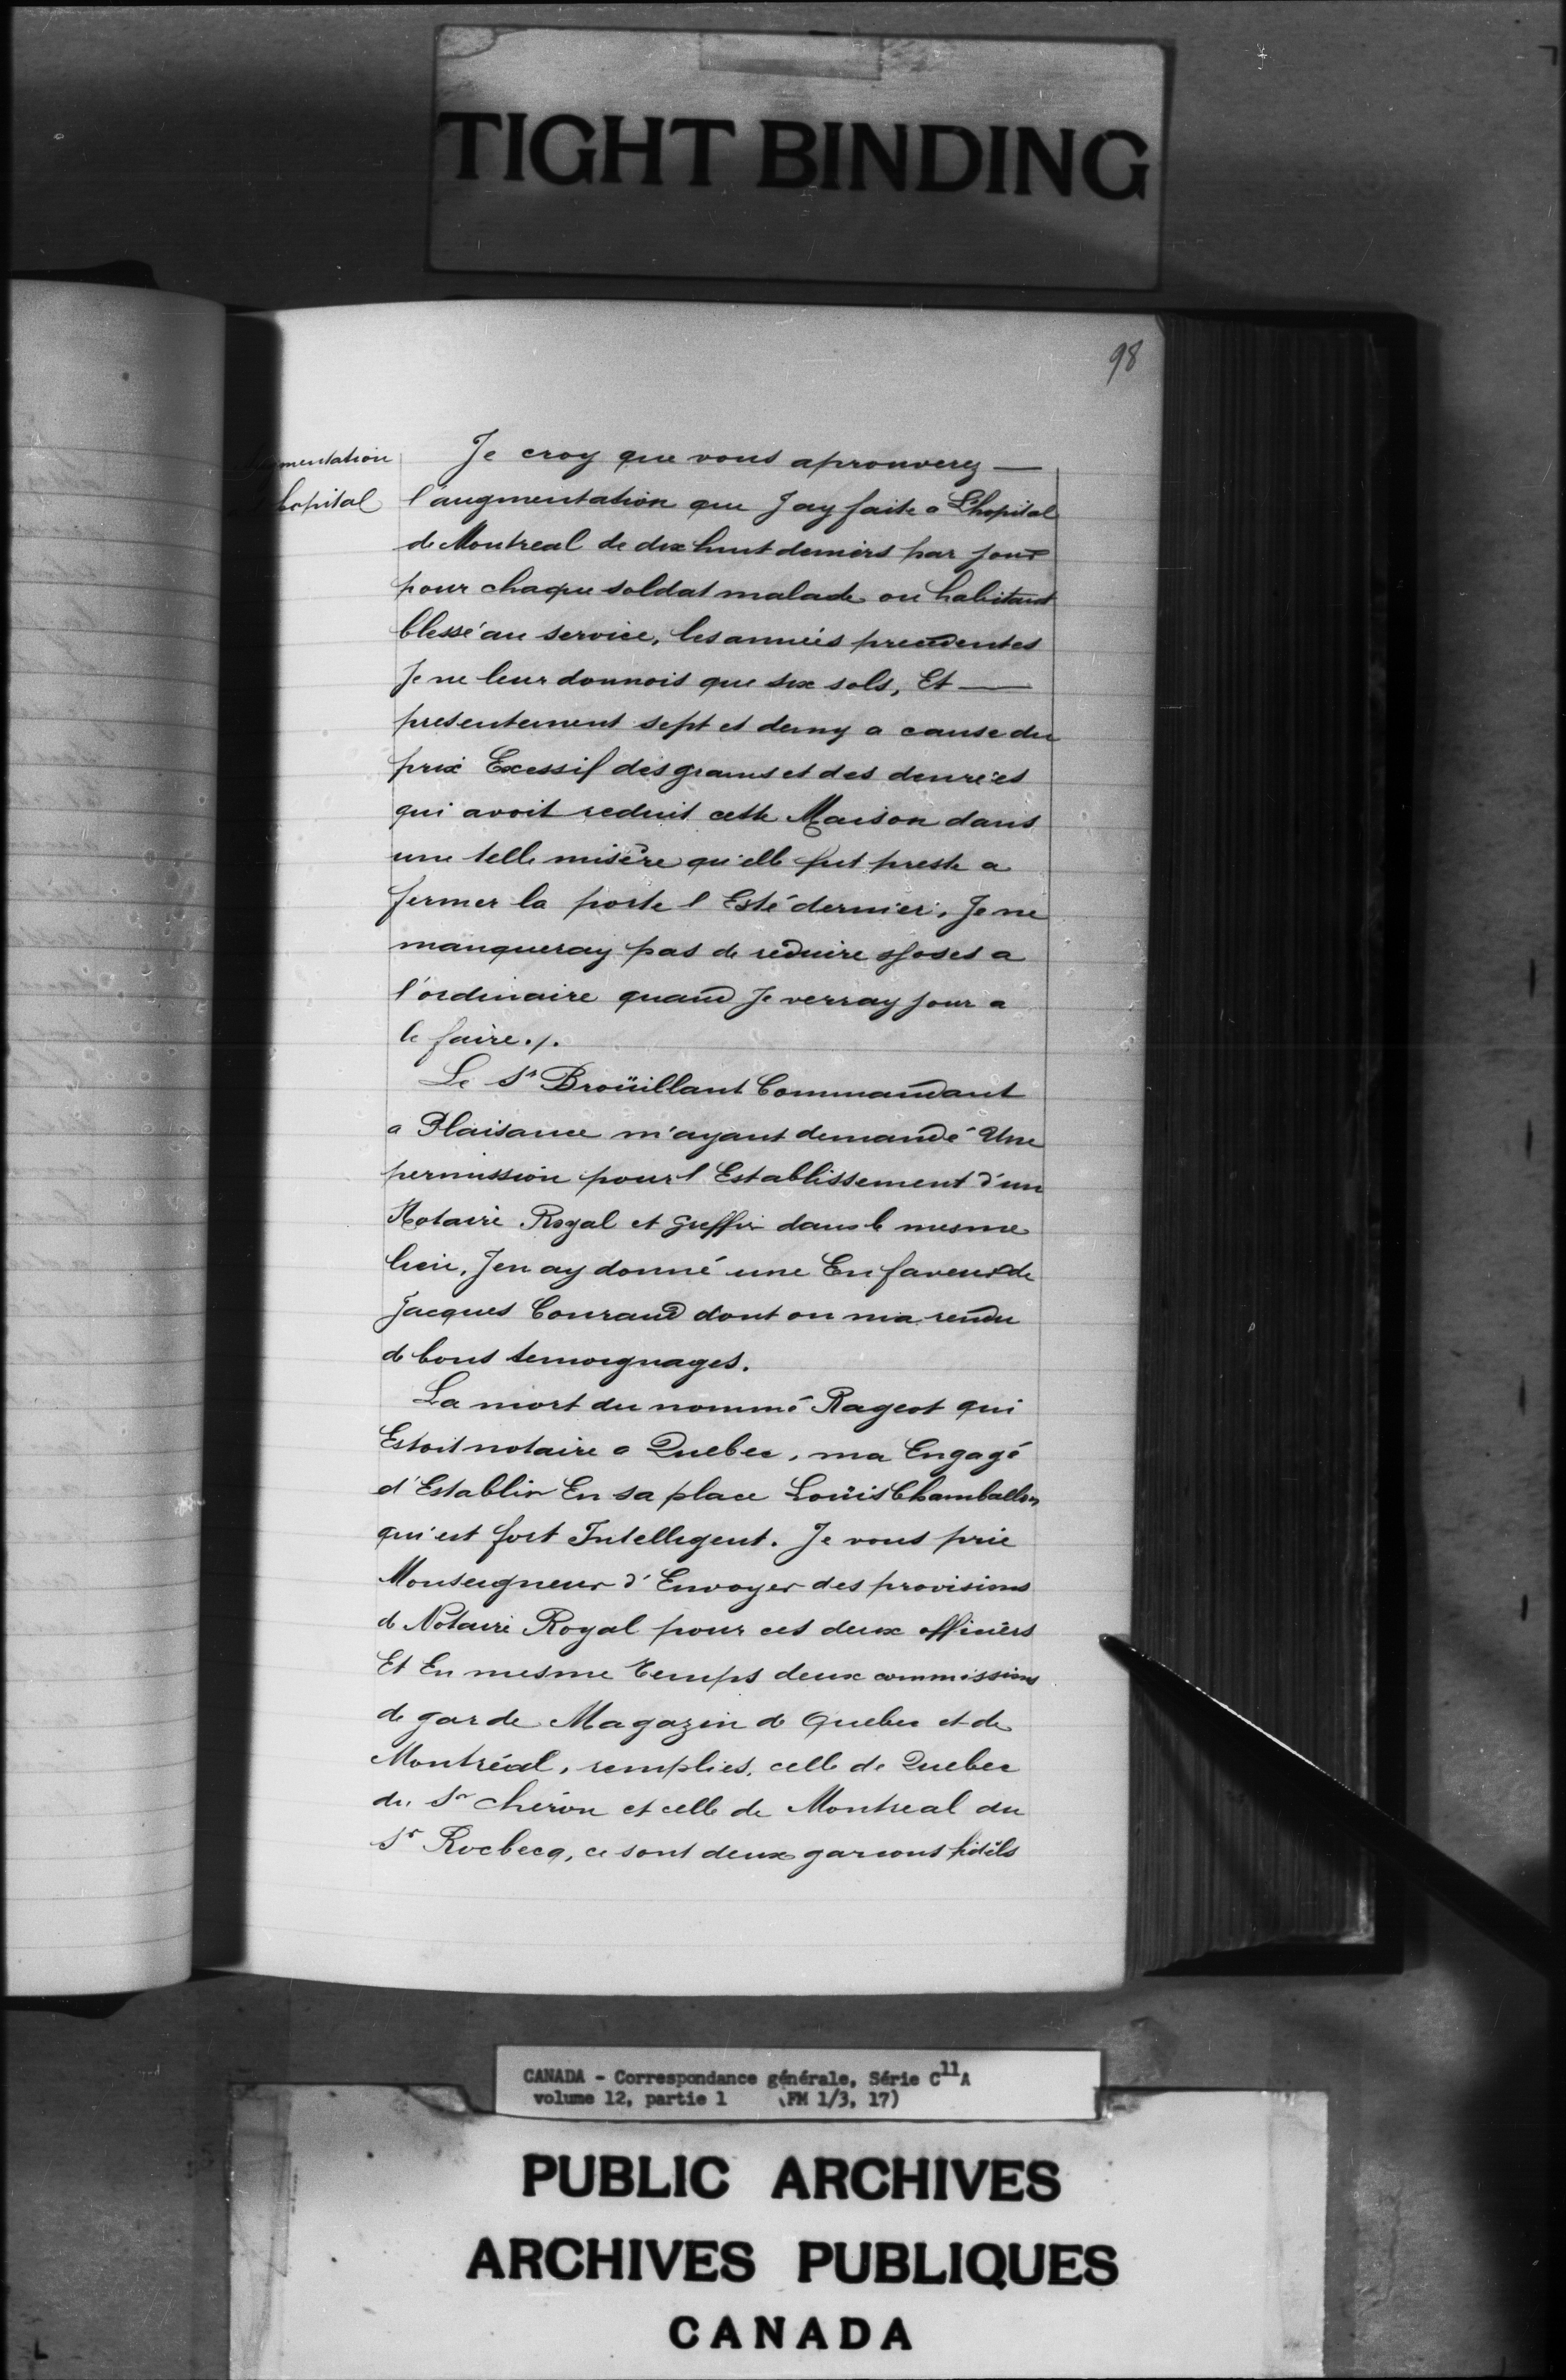 TIGHT BINDING
98
mentation
hopital
Je croy que vous aprouverez —
l'augmentation que Jay faite a L'hopital
de Montreal de dix huit deniers par jour
pour chaque soldat malade ou habitant
blessé au service, les années precedentes
Je ne leur donnois que six sols, Et —
presentement sept et demy a cause du
prix Excessif des grains et des denrées
qui avoit reduit cette Maison dans
une telle misère qu'elle fut preste a
fermer la porte l'Esté dernier. Je ne
manqueray pas de reduire a
l'ordinaire quand Je verray jour a
le faire ./.
Le Sr Broüillant Commandant
a Plaisance m'ayant demandé Une
permission pour l'Establissement d'un
Notaire Royal et greffier dans le mesme
lieu, J'en ay donné une En faveur de
Jacques Couraud dont on m'a rendu
de bons temoignages.
La mort du nommé Rageot qui
Estoit notaire a Quebec, ma Engagé
d'Establir En sa place Loüis Chamballon
qui est fort Intelligent. Je vous prie
Monseigneur d'Envoyer des provisions
de Notaire Royal pour ces deux officiers
Et En mesme temps deux commissions
de garde Magazin de Quebec et de
Montréal, remplies, celle de Quebec
du Sr chéron et celle de Montreal du
Sr Rocbecq, ce sont deux garcons fidèls
CANADA - Correspondance générale, Série C11A
volume 12, partie 1 (FM 1/3, 17)
PUBLIC ARCHIVES
ARCHIVES PUBLIQUES
CANADA